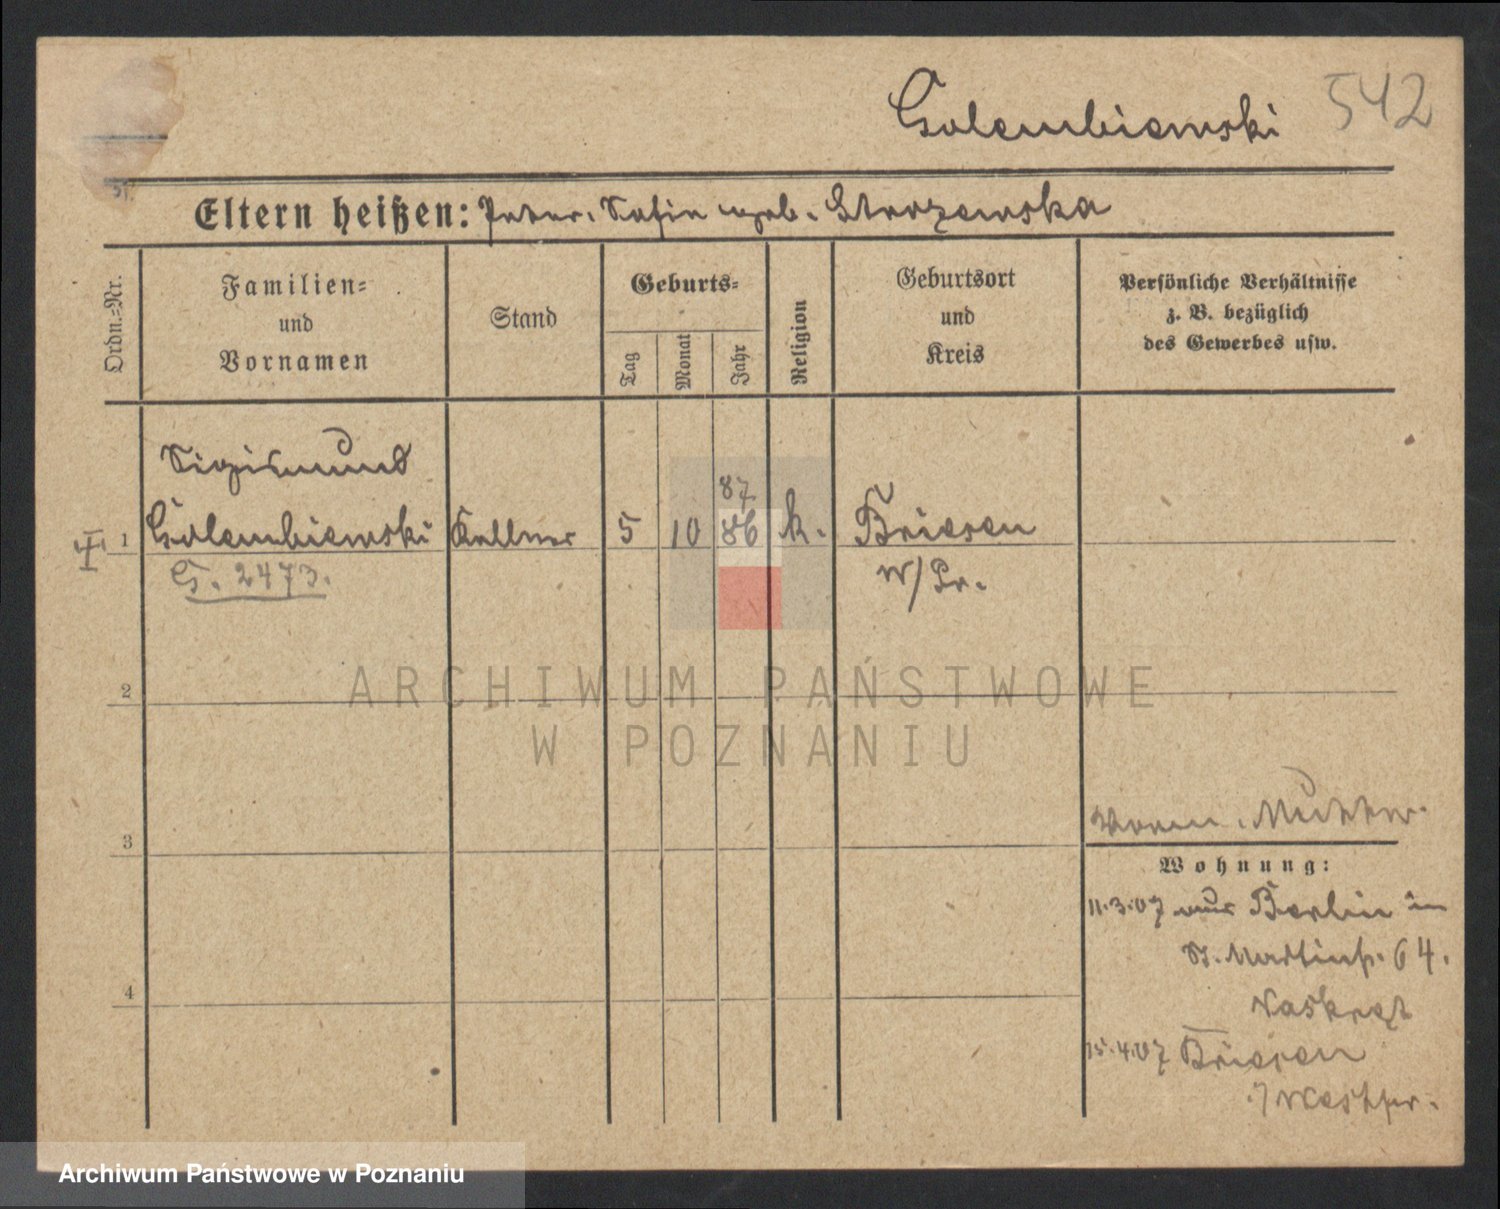 Golembiewski 542
Eltern heißen: Peter. Sofie geb. Storzewska
Ordn.=Nr.
Familien=
und
Vornamen
Stand
Geburts=
Tag
Monat
Jahr
Religion
Geburtsort
und
Kreis
Persönliche Verhältnisse
z. B. bezüglich
des Gewerbes usw.
Sigismund
87
1 Golembiewski Kellner 5 10 86 k. Briesen
G. 2473.
W/Pr.
2
ARCHIWUM PAŃSTWOWE
W POZNANIU
3
Mutter.
Wohnung:
11.3.07 aus Berlin in
St. Martinstr. 64.
15.4.07 Briesen
4
Westpr.
Archiwum Państwowe w Poznaniu